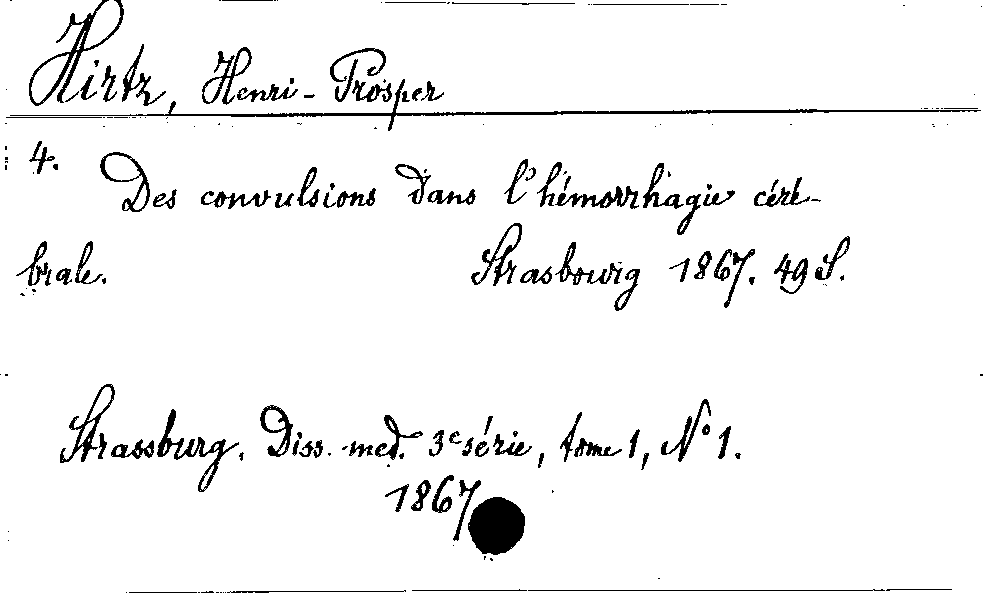 Hirtz, Henri-Prosper
4. Des convulsions dans l'hémorrhagie céré-
brale. Strasbourg 1867. 49 S.
Strassburg. Diss. med. 3e série, tome 1, No 1.
1867